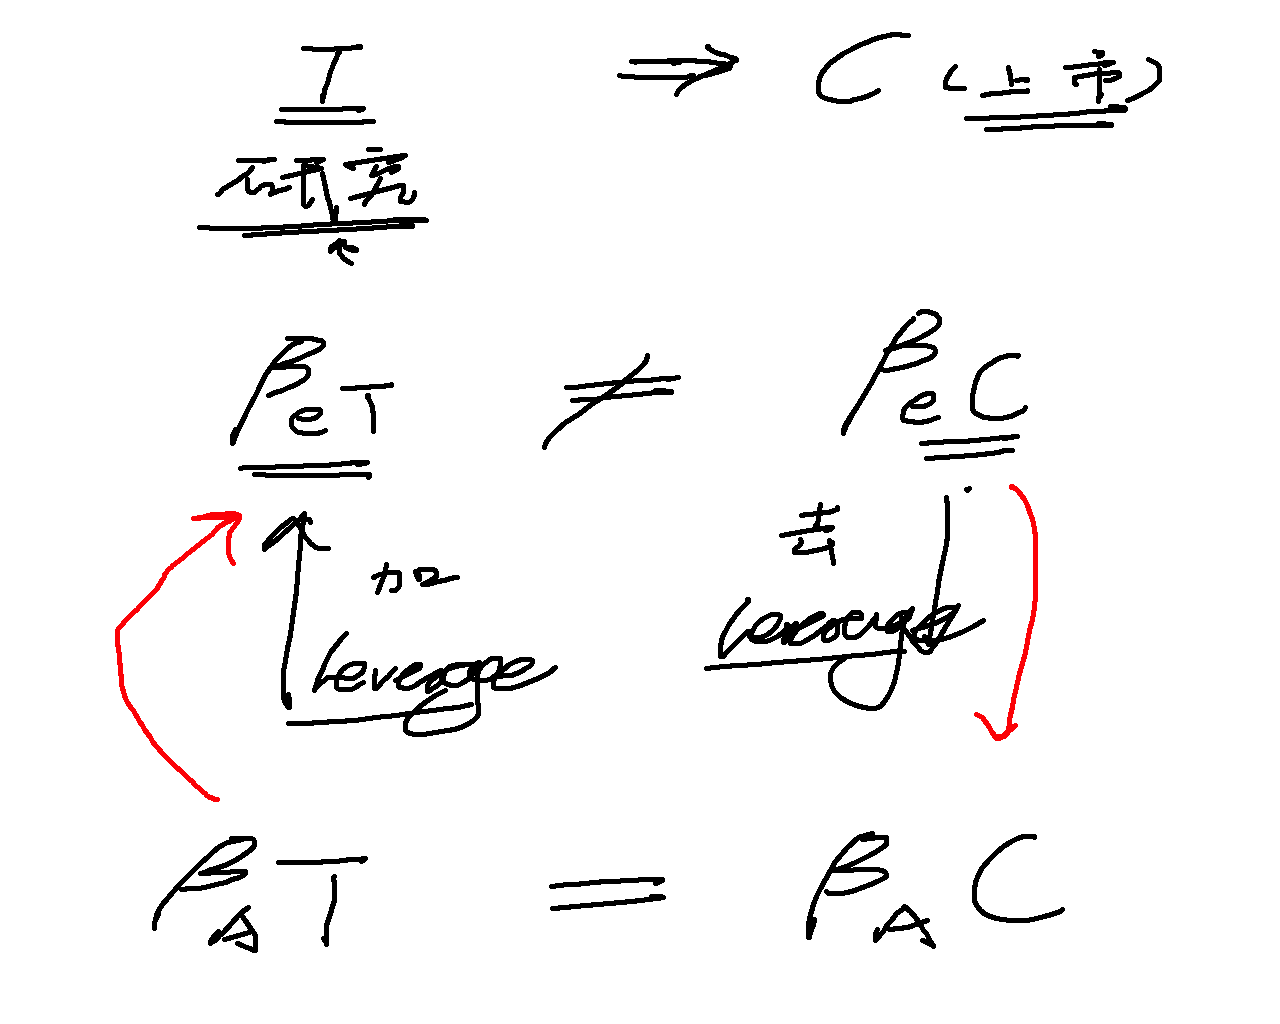 T ⇒ C (上市)
研究
βeT ≠ βeC
去
加
Leverage
Leverage
βAT = βAC